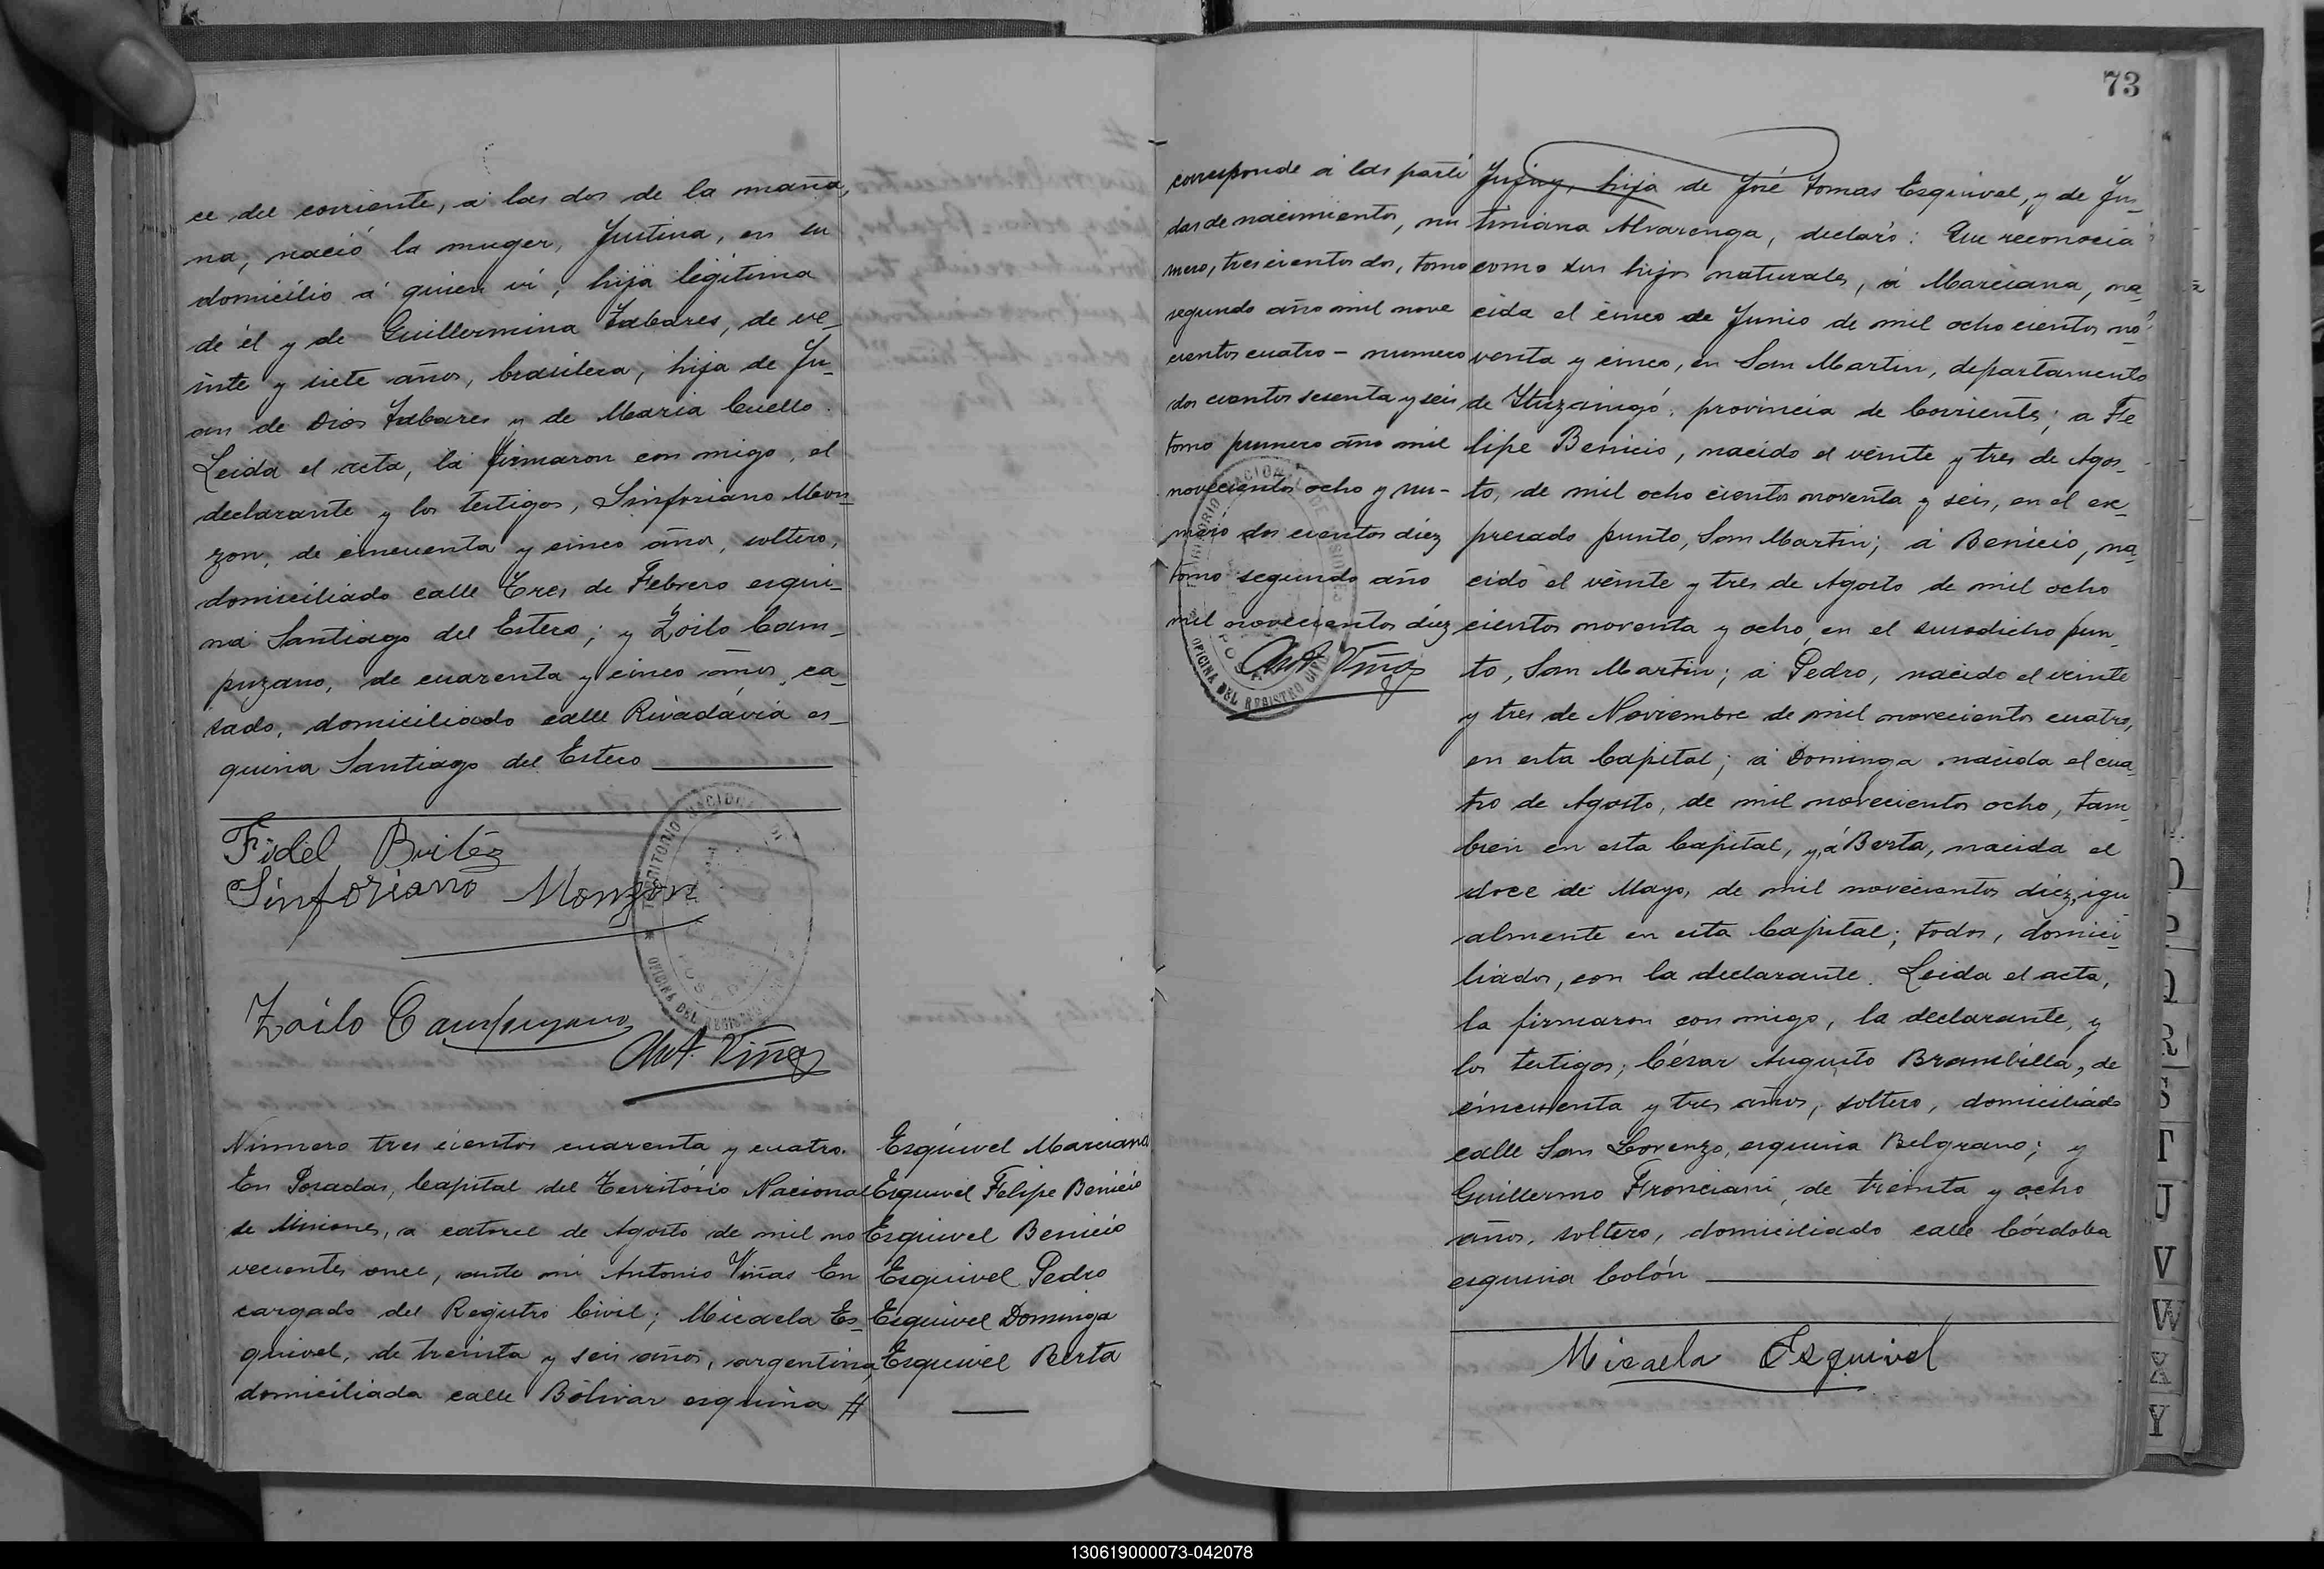 ce del corriente, a las dos de la maña,
na, nació la muger, Justina, en su
domicilio á quien vi, hija legítima
de él y de Guillermina Tabares, de ve_
inte y siete años, brasilera, hija de Ju_
an de Dios Tabares y de Maria Cuello.
Leida el acta, la firmaron con migo, el
declarante y los testigos, Sinforiano Mon_
zon, de cincuenta y cinco años, soltero,
domiciliado calle Tres de Febrero esqui_
na Santiago del Estero; y Zoilo Cam_
puzano, de cuarenta y cinco años, ca_
sado, domiciliado calle Rivadavia es_
quina Santiago del Estero
Fidel Britez
Sinforiano Monzon
Zoilo Campuzano
Ant. Viñas
TERRITORIO NACIONAL DE
OFICINA DEL REGISTRO
POSADAS
Número tres cientos cuarenta y cuatro.
En Posadas, Capital del Território Nacional
de Misiones, a catorce de Agosto de mil no
vecientos once, ante mi Antonio Viñas En
cargado del Registro Civil; Micaela Es_
quivel, de treinta y seis años, argentina,
domiciliada calle Bolivar esquina #
Esquivel Marciana
Esquivel Felipe Benicio
Esquivel Benicio
Esquivel Pedro
Esquivel Dominga
Esquivel Berta
73
corresponde á las parti
das de nacimientos, nu
mero, trescientos dos, tomo
segundo año mil nove
cientos cuatro – numero
dos cientos sesenta y seis
tomo primero año mil
novecientos ocho y nu-
mero dos cientos diez
tomo segundo año
mil novecientos diez
Ant. Viñas
TERRITORIO NACIONAL DE MISIONES
OFICINA DEL REGISTRO CIVIL
Jujuy, hija de José Tomas Esquivel, y de Jus_
tiniana Alvarenga, declaró: Que reconocia
como sus hijos naturales, á Marciana, na_
cida el cinco de Junio de mil ocho cientos no_
venta y cinco, en San Martin, departamento
de Ituzaingó, provincia de Corrientes; a Fe
lipe Benicio, nacido el veinte y tres de Agos_
to, de mil ocho cientos noventa y seis, en el ex_
presado punto, San Martin; á Benicio, na_
cido el veinte y tres de Agosto de mil ocho
cientos noventa y ocho, en el susodicho pun_
to, San Martin; á Pedro, nacido el veinte
y tres de Noviembre de mil novecientos cuatro,
en esta Capital; á Dominga nacida el cua_
tro de Agosto, de mil novecientos ocho, tam
bien en esta Capital, y á Berta, nacida el
doce de Mayo, de mil novecientos diez, igu
almente en esta Capital; todos, domici_
liados, con la declarante. Leida el acta,
la firmaron con migo, la declarante, y
los testigos, César Augusto Brambilla, de
cincuenta y tres años, soltero, domiciliado
calle San Lorenzo, esquina Belgrano; y
Guillermo Fronciani, de treinta y ocho
años, soltero, domiciliado calle Córdoba
esquina Colón
Micaela Esquivel
O
P
Q
R
S
T
U
V
W
X
Y
130619000073-042078